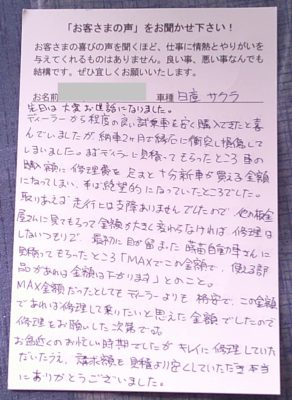 「お客さまの声」をお聞かせ下さい！
お客さまの喜びの声を聞くほど、仕事に情熱とやりがいを
与えてくれるものはありません。良い事、悪い事なんでも
結構です。ぜひ宜しくお願いいたします。
お名前 車種 日産 サクラ
先日は大変お世話になりました。
ディーラーから程度の良い試乗車を安く購入できたと喜
んでいましたが、納車2ヶ月で縁石に衝突し損傷して
しまいました。まずディーラに見積ってもらったところ車の
購入額に修理費を足すと十分新車が買える金額
になってしまい、半ば絶望的になっていたところでした。
取りあえず走行には支障ありませんでしたので、他の板金
屋さんに見てもらって金額が大きく変わらなければ修理は
しないつもりで、最初に目が留まった自動車さんに
見積ってもらったところ「MAXでこの金額で、使える部
品があれば金額は下がります」とのこと。
MAX金額だったとしてもディーラよりも格安で、この金額
であれば修理して乗りたいと思えた金額でしたので
修理をお願いした次第です。
お盆近くのお忙い時期でしたがキレイに修理していた
だいたうえ、請求額も見積より安くしていただき本当
にありがとうございました。